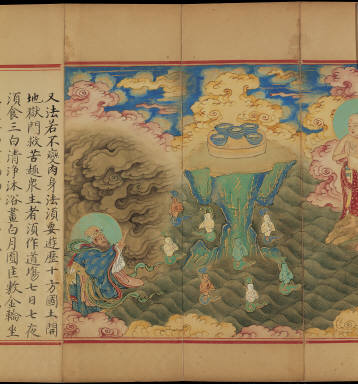 又法若不變肉身法須要遊歷十方國土開
地獄門救苦趣衆生者須作道場七日七夜
須食三白清淨沐浴畫白月圓匡敷金輪坐